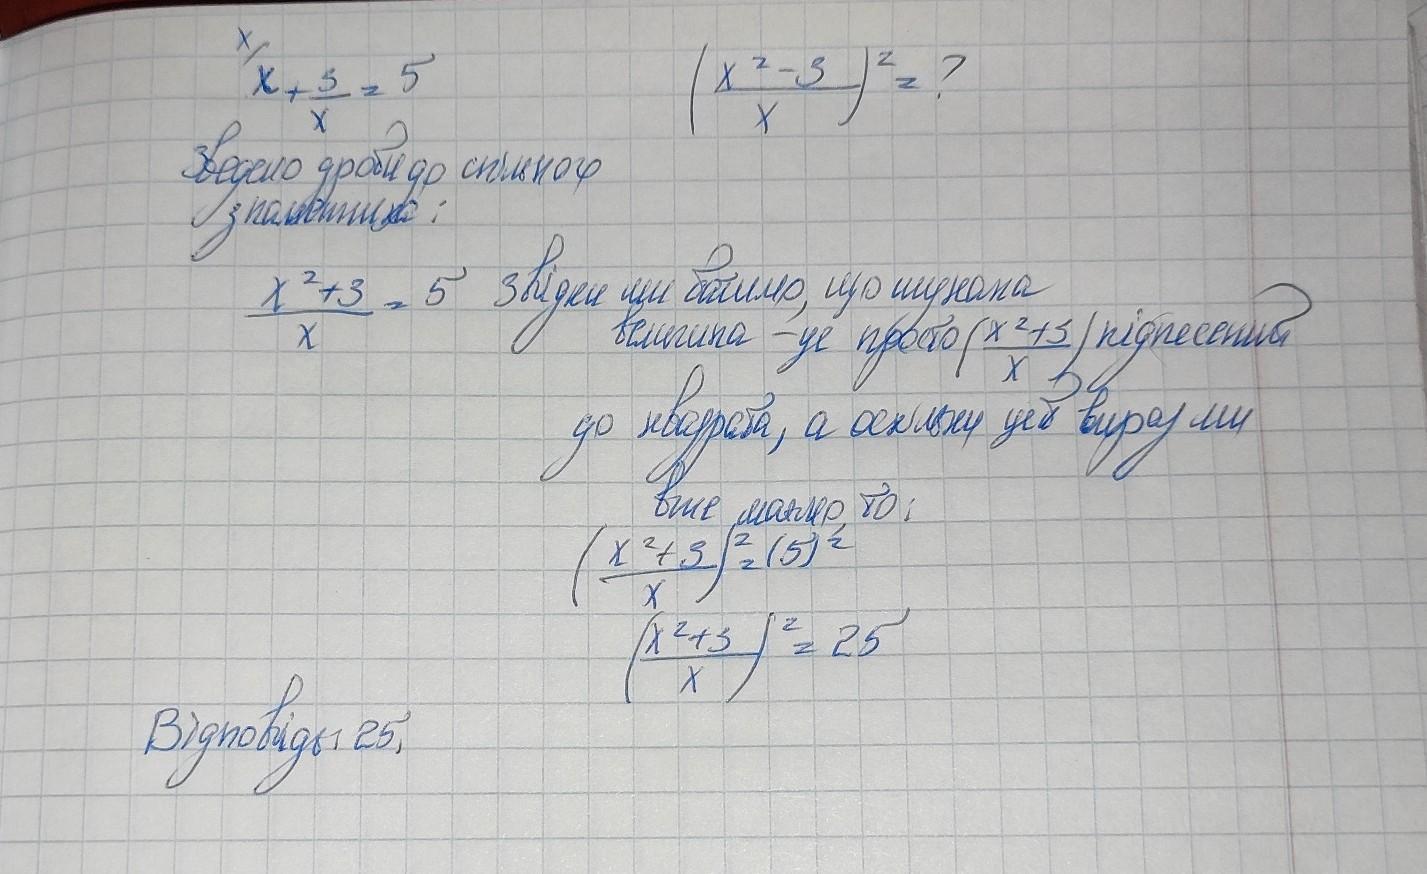 x/
x + 3/x = 5
((x² - 3)/x)² = ?
Зведемо дроби до спільного
знаменника:
(x² + 3)/x = 5 Звідки ми бачимо, що шукана
величина - це просто ((x² + 3)/x) піднесений
до квадрата, а оскільки цей вираз ми
вже маємо, то:
((x² + 3)/x)² = (5)²
((x² + 3)/x)² = 25
Відповідь: 25.